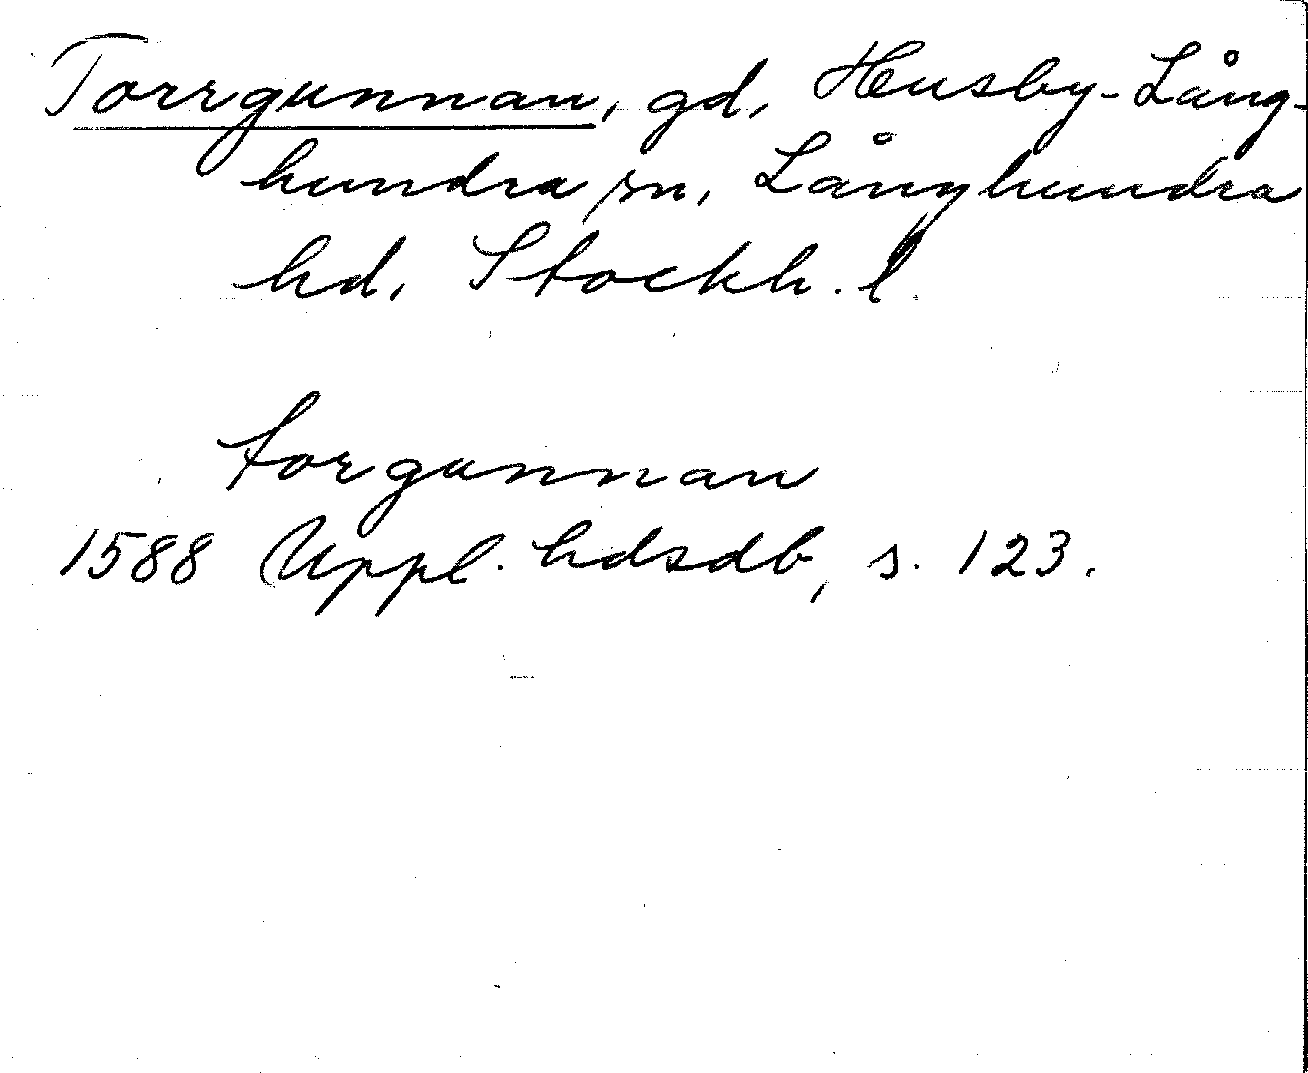 Torrgunnan, gd, Husby-Lång-
hundra sn, Långhundra
hd, Stockh. l.
torgunnan
1588 Uppl. hdsdb, s. 123.